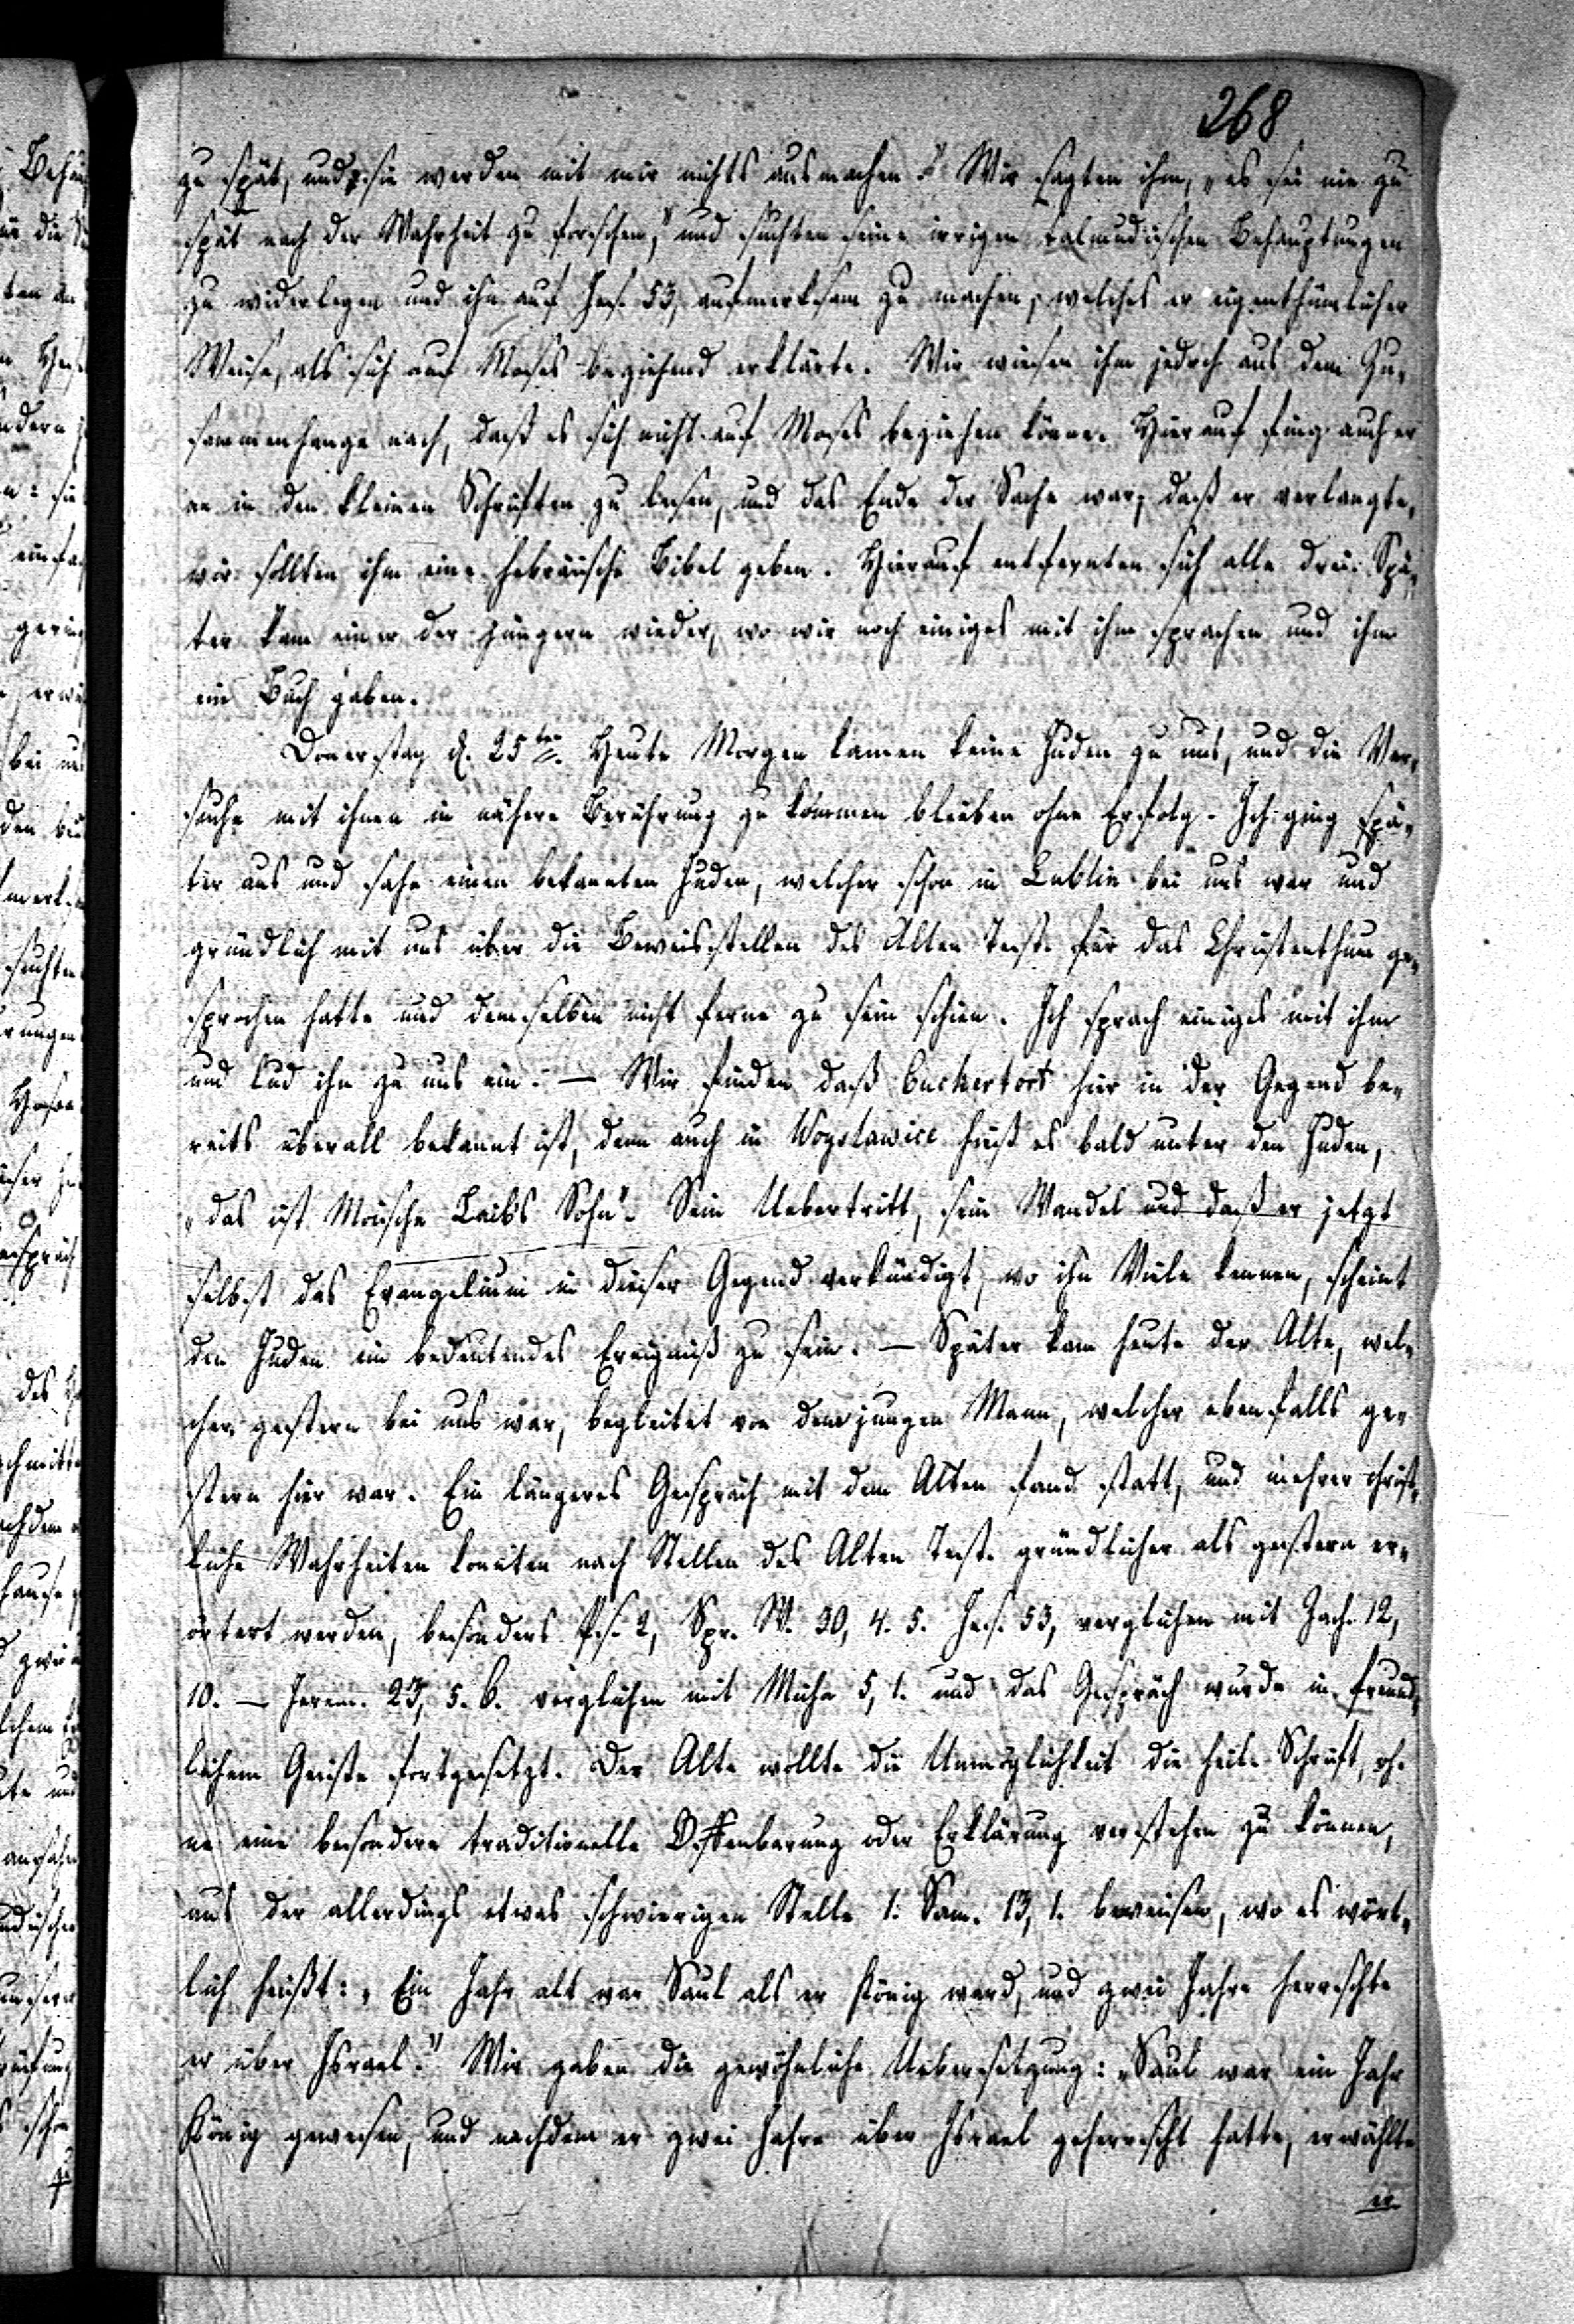 268
zu spät, und sie werden mit mir nichts ausmachen." Wir sagten ihm, „es sei nie zu
spät nach der Wahrheit zu forschen," und suchten seine irrigen talmudischen Behauptungen
zu widerlegen und ihn auf Jes. 53, aufmerksam zu machen, welches er eigenthümlicher
Weise, als sich auf Moses beziehend erklärte. Wir wiesen ihm jedoch aus dem Zu-
sammenhange nach, daß es sich nicht auf Moses beziehen könne. Hierauf fing auch er
an in den kleinen Schriften zu lesen, und das Ende der Sache war, daß er verlangte,
wir sollten ihm eine hebräische Bibel geben. Hierauf entfernten sich alle drei. Spä-
ter kam einer der jüngern wieder, wo wir noch einiges mit ihm sprachen und ihm
ein Buch gaben.
Donerstag d. 25ten. Heute Morgen kamen keine Juden zu uns, und die Ver-
suche mit ihnen in nähere Berührung zu kommen blieben ohne Erfolg. Ich ging spä-
ter aus und sahe einen bekannten Juden, welcher schon in Lublin bei uns war und
gründlich mit uns über die Beweisstellen des Alten Test. für das Christenthum ge-
sprochen hatte und demselben nicht ferne zu sein schien. Ich sprach einiges mit ihm
und lud ihn zu uns ein. — Wir finden daß Cuckertort hier in der Gegend be-
reits überall bekannt ist, denn auch in Woyslawice hieß es bald unter den Juden,
„das ist Moische Laibs Sohn". Sein Uebertritt, sein Wandel und daß er jetzt
selbst das Evangelium in dieser Gegend verkündigt, wo ihn Viele kennen, scheint
den Juden ein bedeutendes Ereigniß zu sein. — Später kam heute der Alte, wel-
cher gestern bei uns war, begleitet von dem jungen Mann, welcher ebenfalls ge-
stern hier war. Ein längeres Gespräch mit dem Alten fand statt, und mehrer christ-
liche Wahrheiten konnten nach Stellen des Alten Test. gründlicher als gestern er-
örtert werden, besonders Ps. 2, Spr. W. 30, 4. 5. Jes. 53, verglichen mit Zach. 12,
10. — Jerem. 23, 5. 6. verglichen mit Micha 5, 1. und das Gespräch wurde in freund-
lichem Geiste fortgesetzt. Der Alte wollte die Unmöglichkeit die heil. Schrift, oh-
ne eine besondere traditionelle Offenbarung oder Erklärung verstehen zu können,
aus der allerdings etwas schwierigen Stelle 1. Sam. 13, 1. beweisen, wo es wört-
lich heißt: „Ein Jahr alt war Saul als er König ward, und zwei Jahre herrschte
er über Israel." Wir gaben die gewöhnliche Uebersetzung: „Saul war ein Jahr
König gewesen, und nachdem er zwei Jahre über Israel geherrscht hatte, erwählte
er